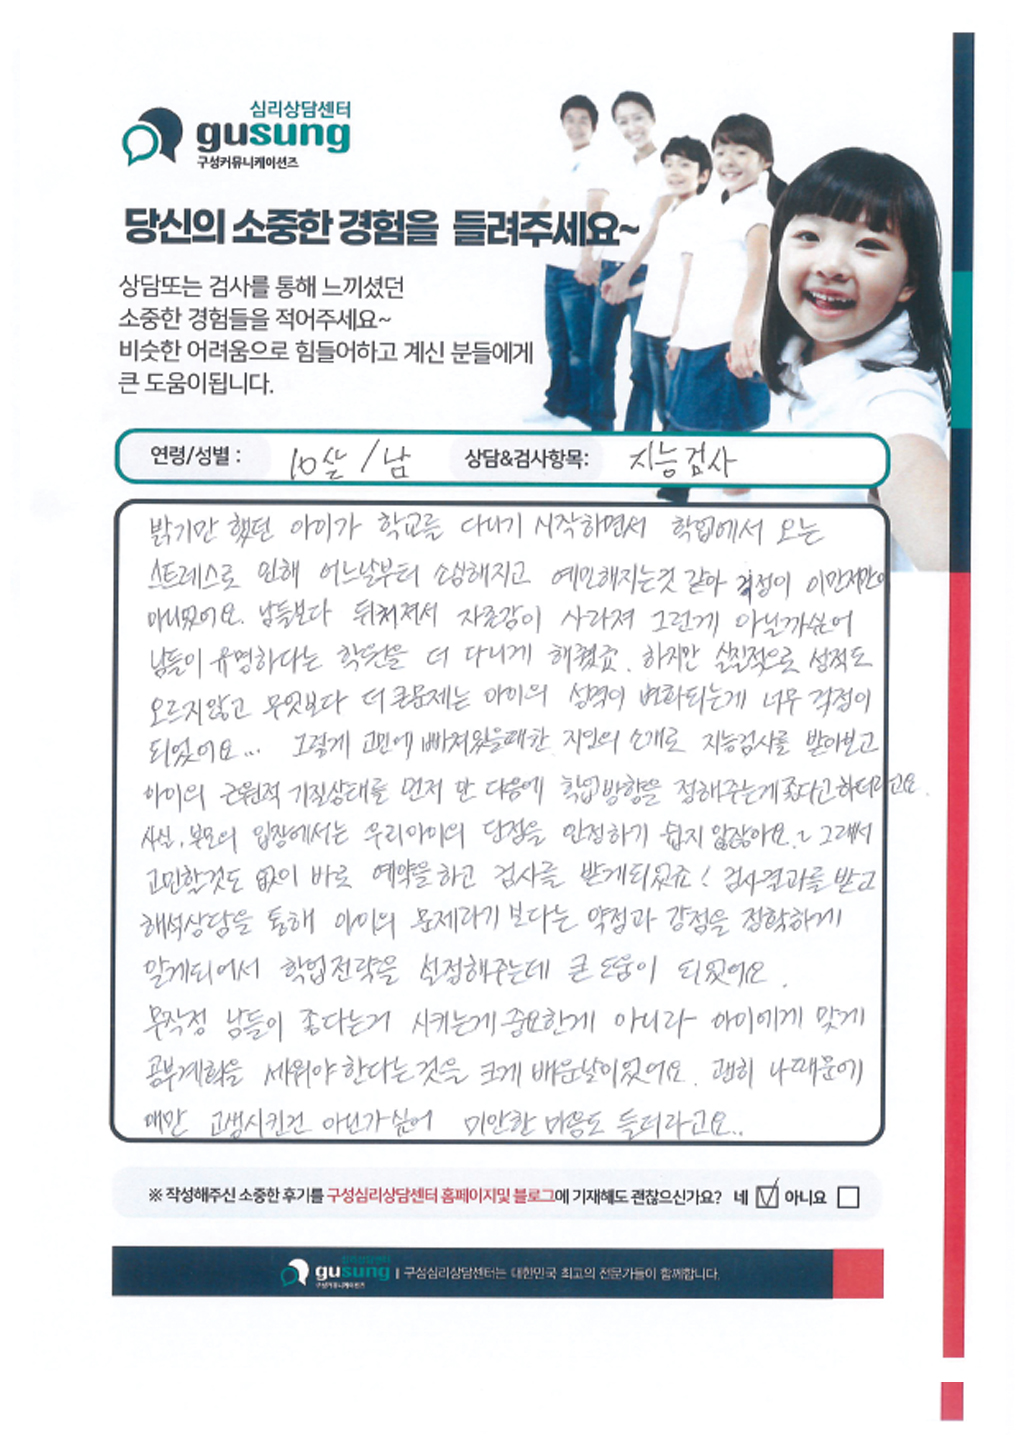 심리상담센터
gusung
구성커뮤니케이션즈
당신의 소중한 경험을 들려주세요~
상담또는 검사를 통해 느끼셨던
소중한 경험들을 적어주세요~
비슷한 어려움으로 힘들어하고 계신 분들에게
큰 도움이됩니다.
연령/성별 : 10살 / 남 상담&검사항목: 지능검사
밝기만 했던 아이가 학교를 다니기 시작하면서 학업에서 오는
스트레스로 인해 어느날부터 소심해지고 예민해지는것 같아 걱정이 이만저만이
아니였어요. 남들보다 뒤쳐져서 자존감이 사라져 그런게 아닐까싶어
남들이 유명하다는 학원을 더 다니게 해줬죠. 하지만 실질적으로 성적도
오르지않고 무엇보다 더 큰문제는 아이의 성격이 변화되는게 너무 걱정이
되었어요... 그렇게 고민에 빠져있을때 한 지인의 소개로 지능검사를 받아보고
아이의 근원적 기질상태를 먼저 안 다음에 학업방향을 정해주는게 좋다고 하더라고요.
사실, 부모의 입장에서는 우리아이의 단점을 인정하기 쉽지 않잖아요.~ 그래서
고민할것도 없이 바로 예약을 하고 검사를 받게되었죠! 검사결과를 받고
해석상담을 통해 아이의 문제라기 보다는 약점과 강점을 정확하게
알게되어서 학업전략을 설정해주는데 큰 도움이 되었어요.
무작정 남들이 좋다는거 시키는게 중요한게 아니라 아이에게 맞게
공부계획을 세워야 한다는 것을 크게 배운날이었어요. 괜히 나때문에
애만 고생시킨건 아닌가싶어 미안한 마음도 들더라고요..
※ 작성해주신 소중한 후기를 구성심리상담센터 홈페이지및 블로그에 기재해도 괜찮으신가요? 네 ☑ 아니요 ☐
심리상담센터
gusung
구성커뮤니케이션즈
| 구성심리상담센터는 대한민국 최고의 전문가들이 함께합니다.